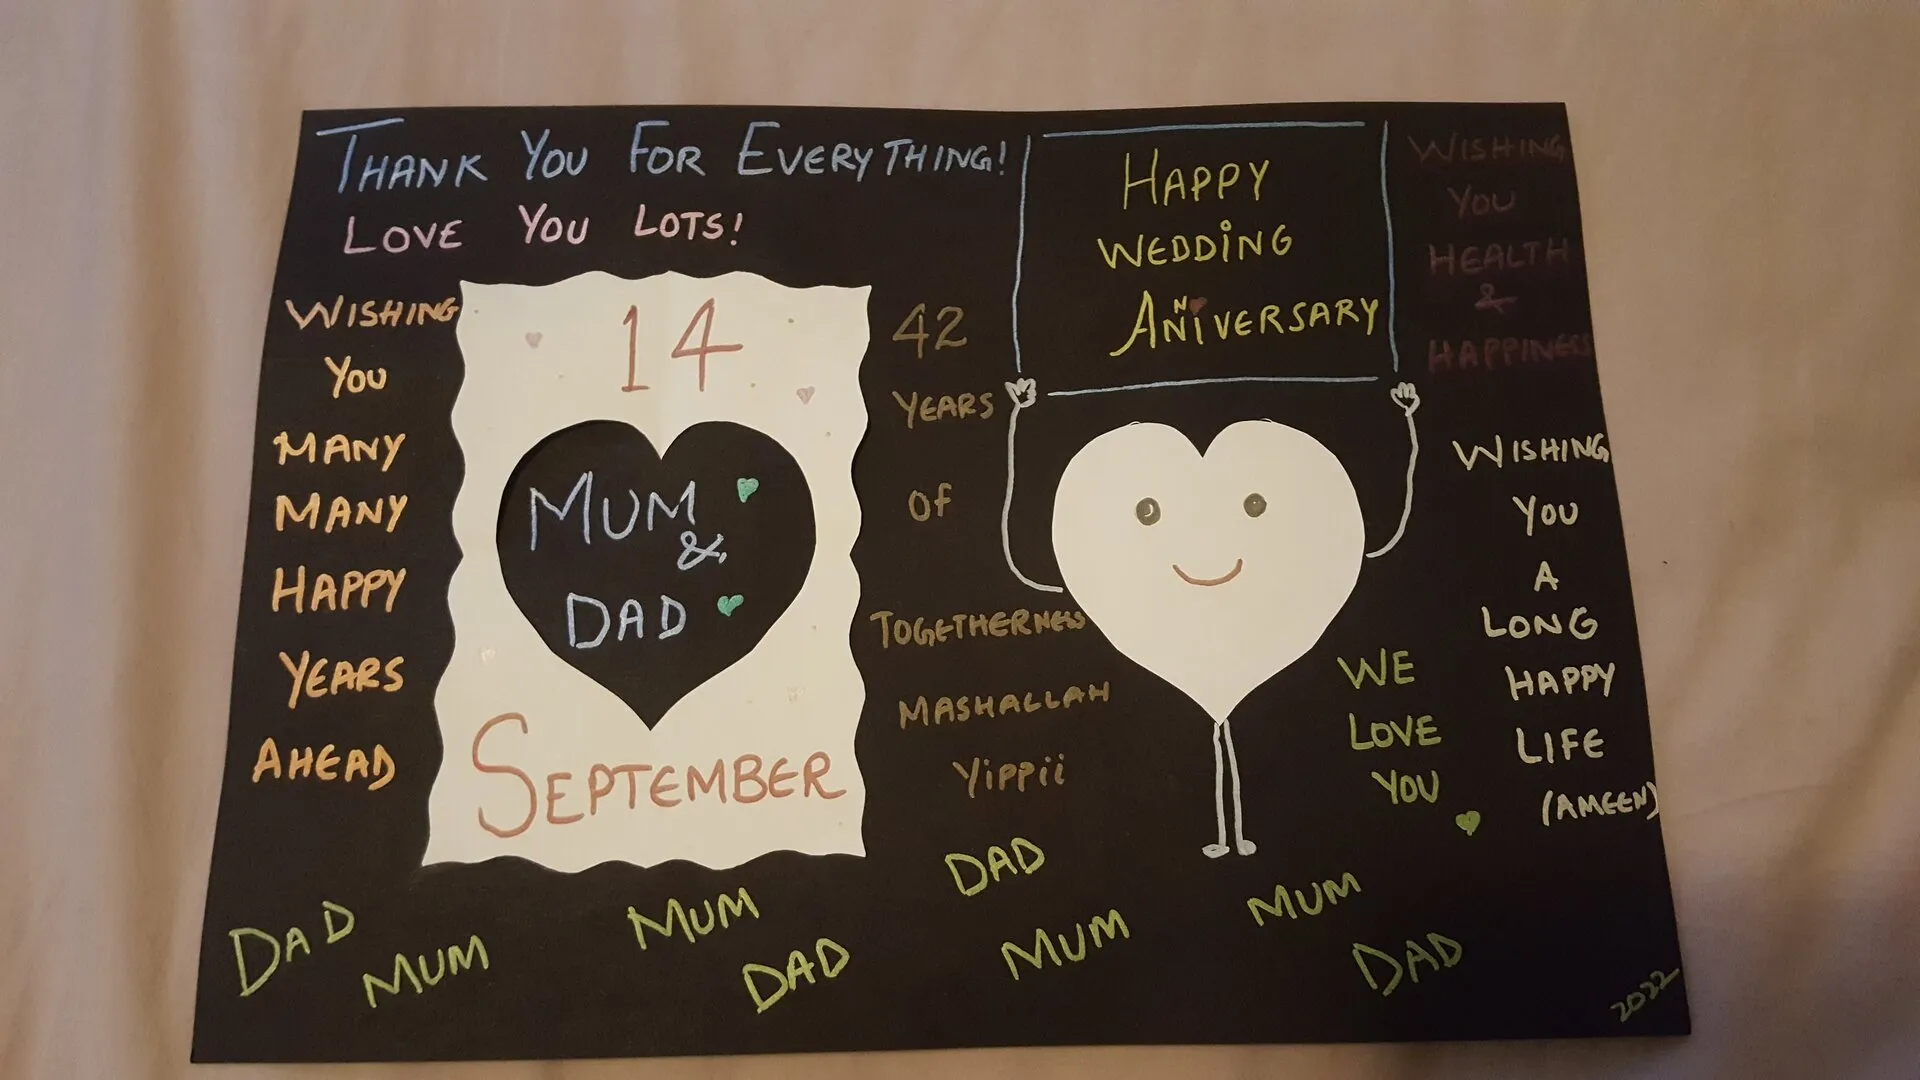 THANK YOU FOR EVERYTHING!
LOVE YOU LOTS!
WISHING
YOU
MANY
MANY
HAPPY
YEARS
AHEAD
14
MUM
&
DAD
SEPTEMBER
42
YEARS
OF
TOGETHERNESS
MASHALLAH
YIPPII
HAPPY
WEDDING
ANNIVERSARY
WISHING
YOU
HEALTH
&
HAPPINESS
WISHING
YOU
A
LONG
HAPPY
LIFE
(AMEEN)
WE
LOVE
YOU
DAD
MUM
MUM
DAD
DAD
MUM
MUM
DAD
2022